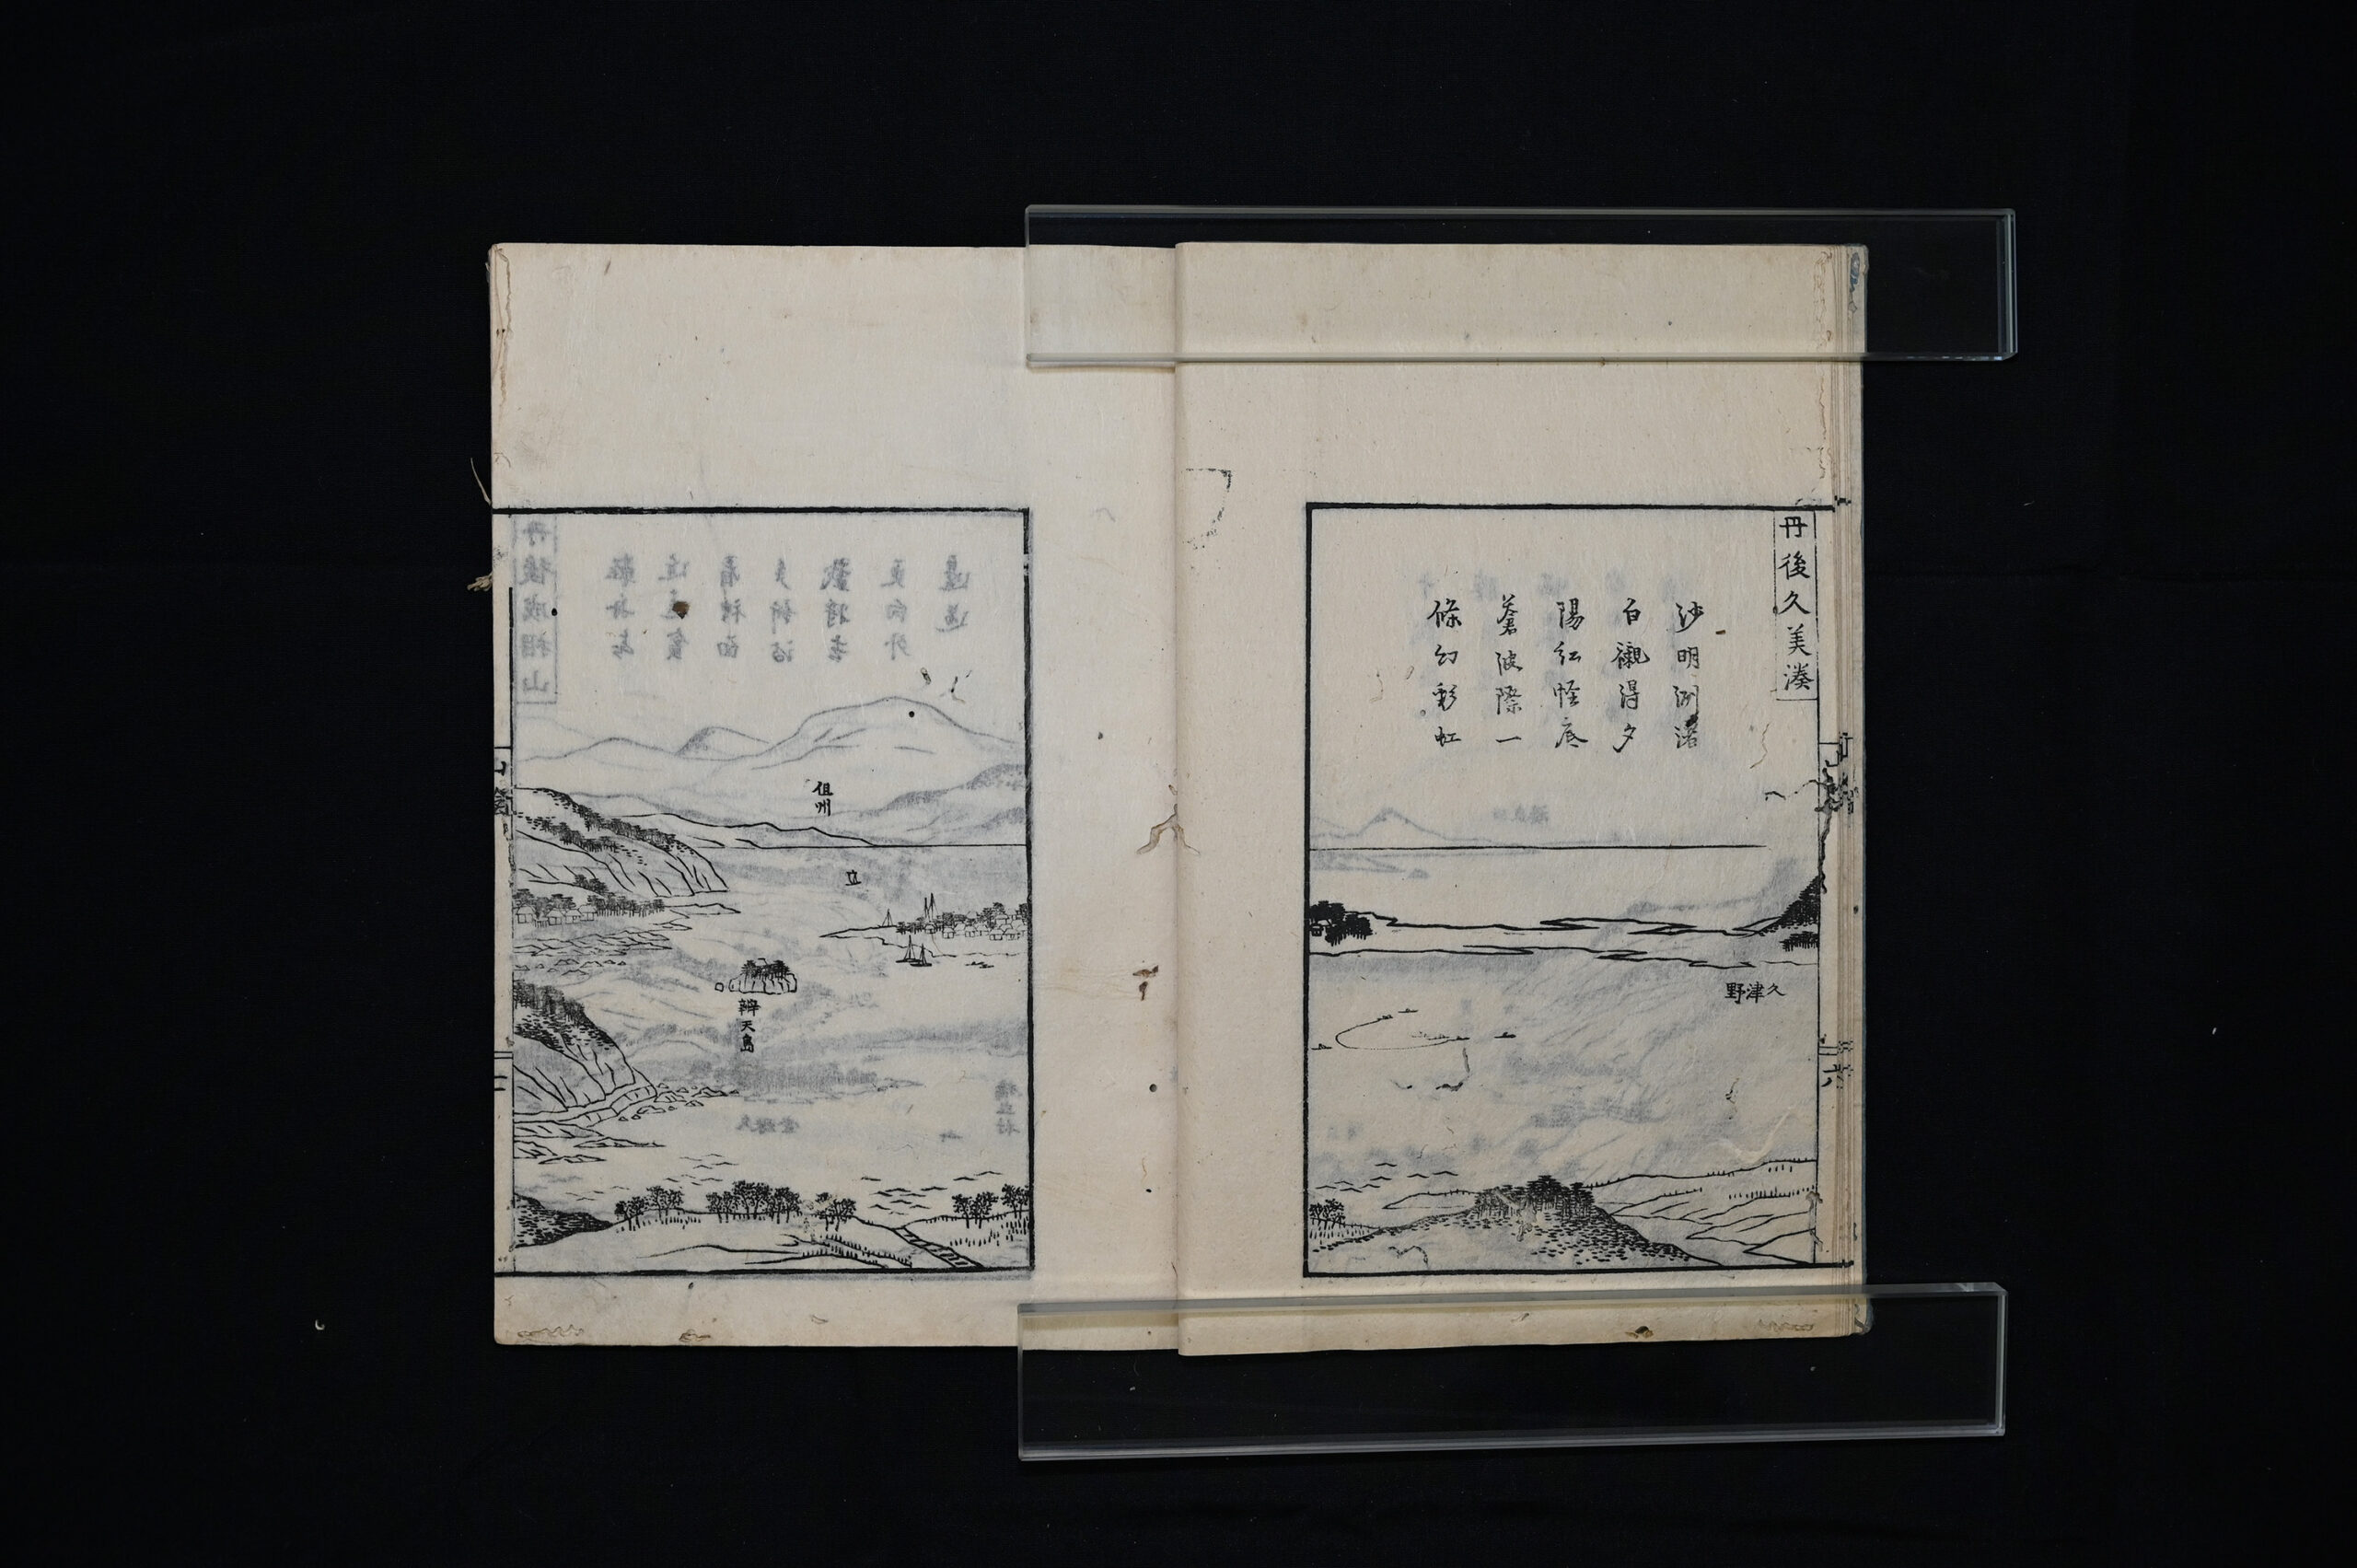 丹後久美湊
沙明洲渚
白襯得夕
陽紅怪底
蒼波際一
條幻彩虹
久津野
六
但州
辨天島